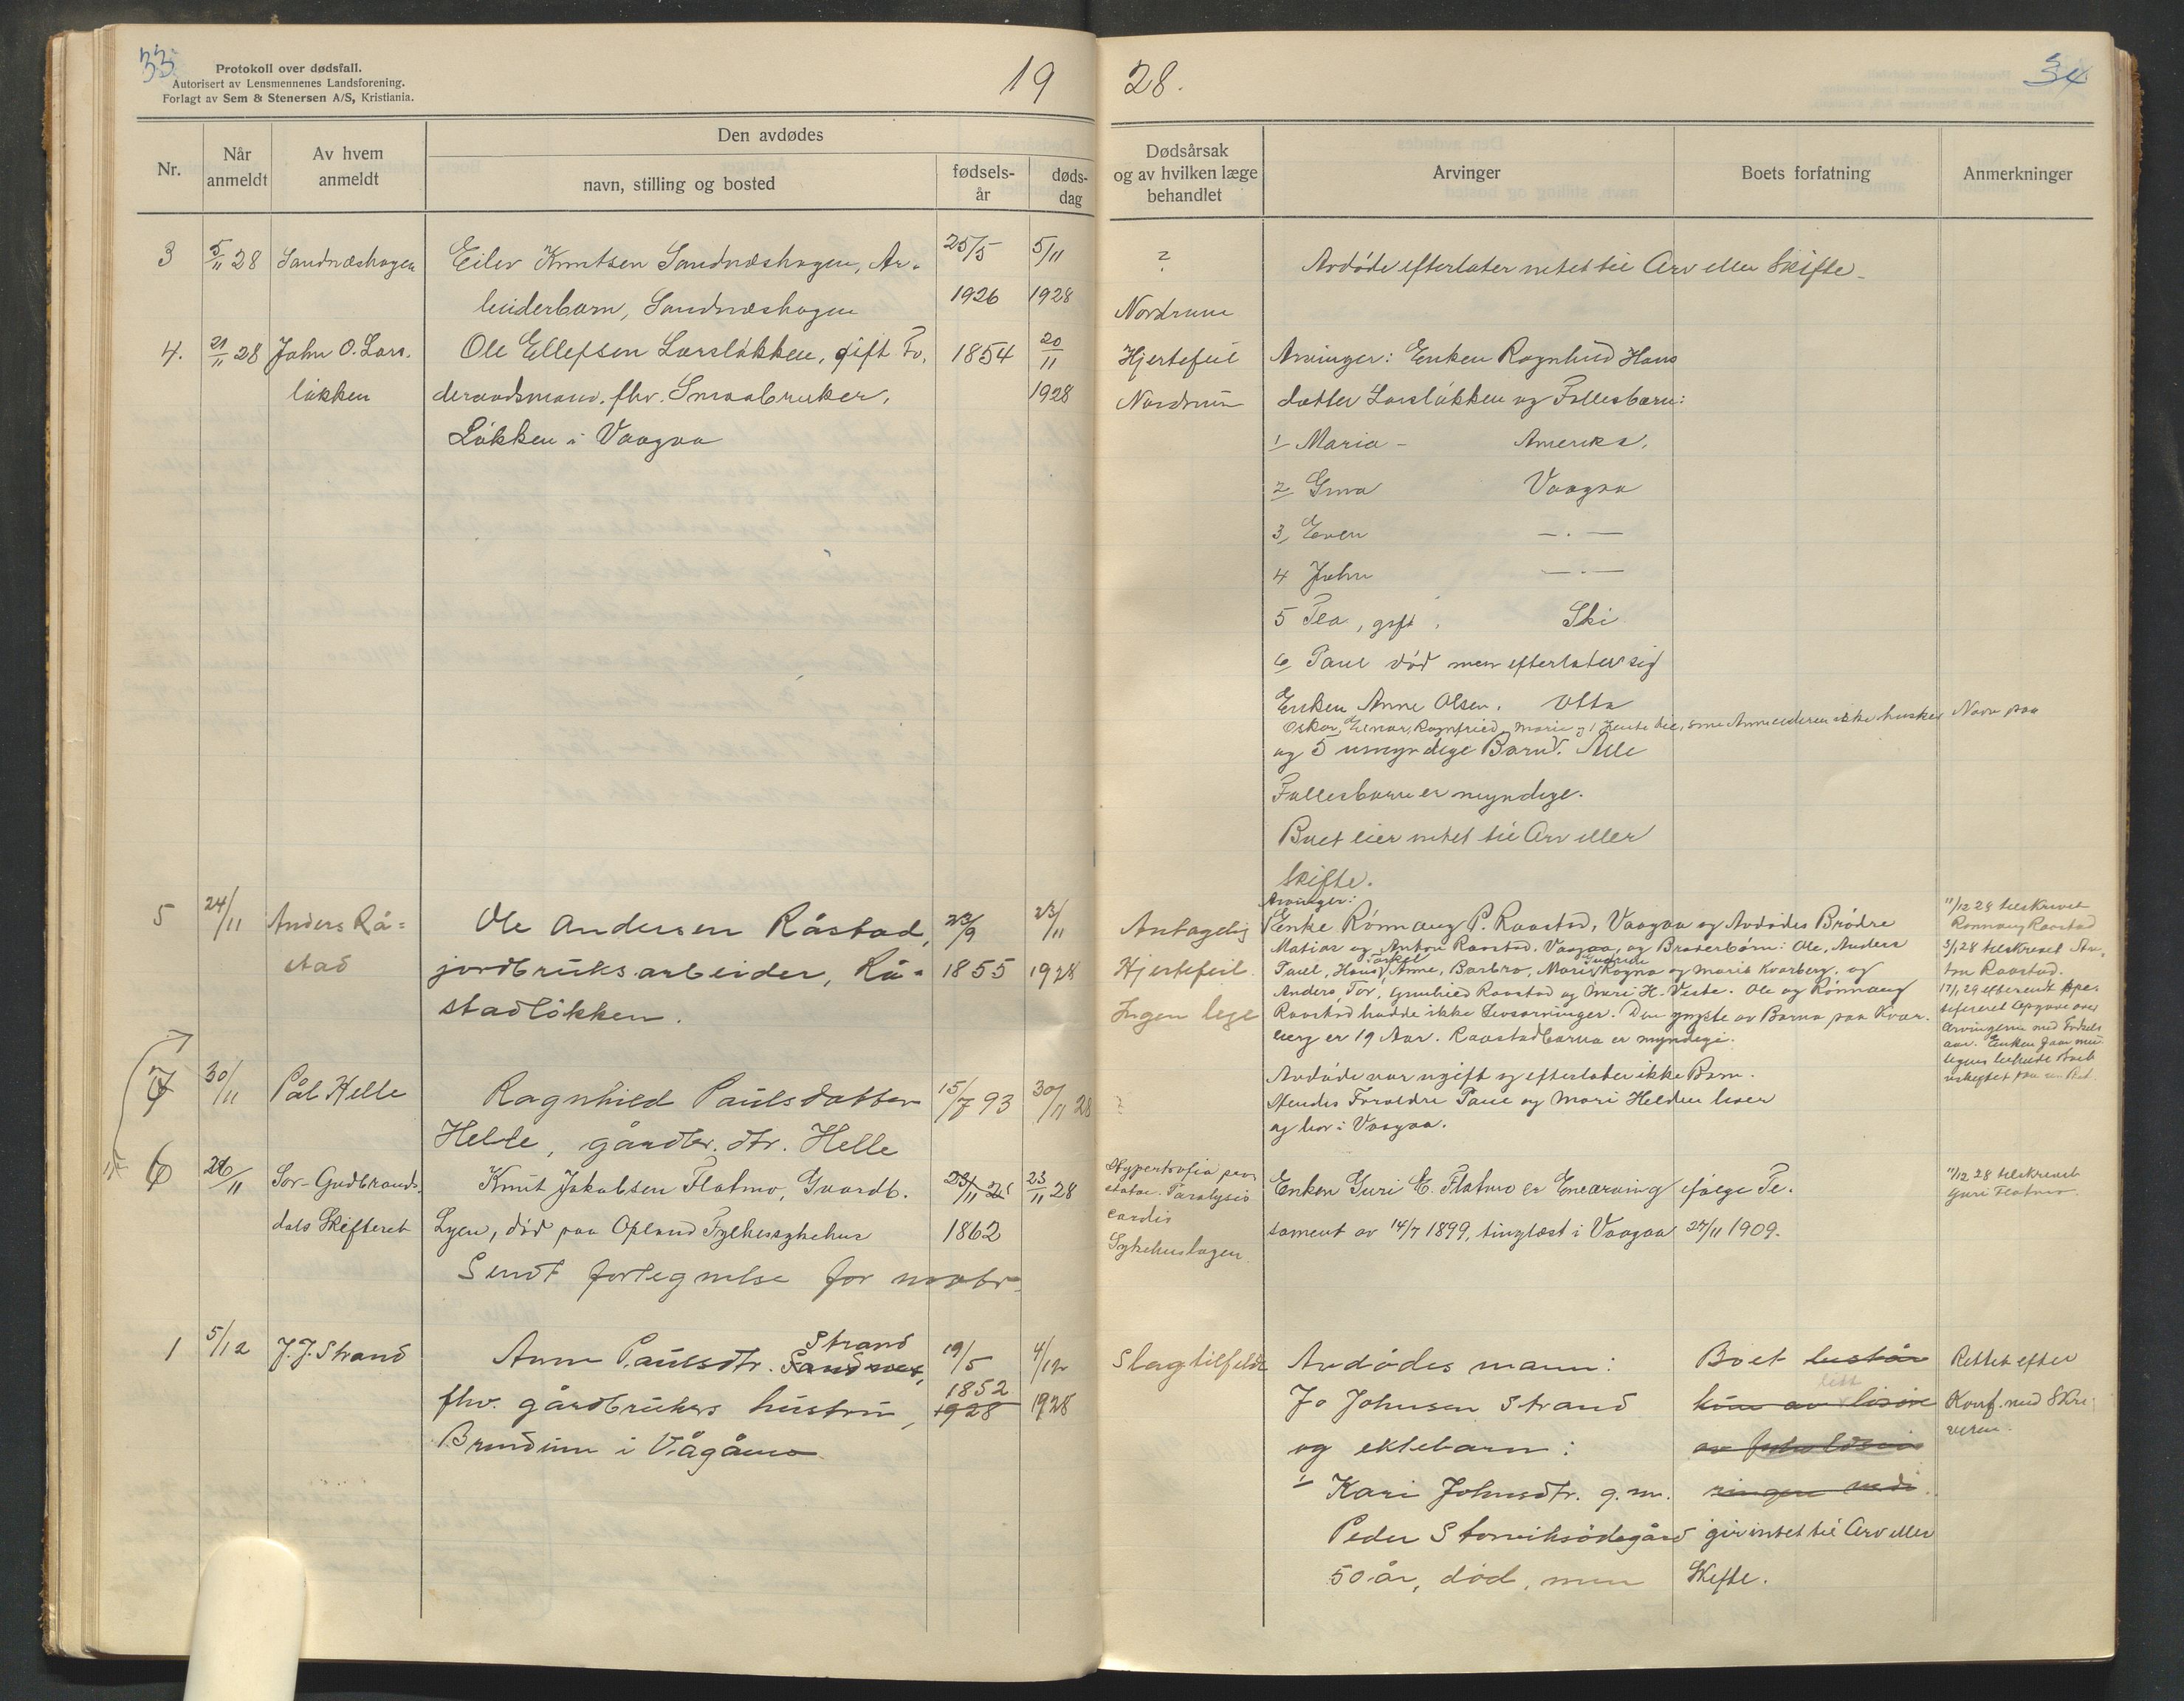 33
Protokoll over dødsfall.
Autorisert av Lensmennenes Landsforening.
Forlagt av Sem & Stenersen A/S, Kristiania.
19
28.
34
Nr.
Når anmeldt
Av hvem anmeldt
Den avdødes
navn, stilling og bosted
fødsels-
år
døds-
dag
Dødsårsak
og av hvilken læge
behandlet
Arvinger
Boets forfatning
Anmerkninger
3 5/11 28 Sandnæshagen Eilev Knutsen Sandnæshagen, Ar- 25/5 5/11 ? Avdøde efterlater intet til Arv eller Skifte
beiderbarn, Sandnæshagen 1926 1928 Nordrum
4. 21/11 28 John O. Lars- Ole Ellefsen Larsløkken, gift Fo- 1854 20/11 Hjertefeil Arvinger: Enken Ragnhild Hans
løkken deraadsmann, fhv. Smaabruker, 1928 Nordrum datter Larsløkken og Fellesbarn:
Løkken i Vaagaa
1 Maria - Amerika.
2 Vaagaa
3 Even — . —
4 John — . —
5 Tea, gift, Ski
6 Paul død men efterlater sig
Enken Anne Olsen, Otta
Oskar, Einar, Ragnfried, Marie og 1 Jente til, som Anmelderen ikke husker Navn paa
og 5 umyndige Barn. Alle
Fellesbarn er myndige.
Boet eier intet til Arv eller
Skifte.
Arvinger:
5 24/11 Anders Rå= Ole Andersen Råstad, 23/9 23/11 Antagelig Enke Rønnaug P. Raastad, Vaagaa og Avdødes Brødre 11/12 28 tilskrevet
Rønnaug Raastad
Matias og Anton Raastad, Vaagaa, og Broderbørn: Ole, Anders
stad jordbruksarbeider, Rå- 1855 1928 Hjertefeil. Paul, Hans, Torkel, Anne, Barbro, Mari, Ragna og Maria Kvarberg, og
3/1 28 tilskrevet An-
ton Raastad.
stadløkken. Ingen lege Anders, Tor, Gunhild Raastad og Mari H. Veste. Ole og Rønnaug
Raastad hadde ikke Livsarvinger. Den yngste av Barna paa Kvar-
berg er 19 Aar. Raastadbarna er myndige.
7 30/11 Pål Helle Ragnhild Paulsdatter 15/7 93 30/11 28 ? Avdøde var ugift og efterlater ikke Barn.
Helle, gårdbr. dtr. Helle Foreldre Paul og Mari Helle lever
og bor i Vaagaa.
6 26/11 Sør-Gudbrands- Knut Jakobsen Flatmo, Gaardb. 23/11 28 Hypertrofia pro-
statae. Paralysis
cordis
Enken Guri E. Flatmo er Enearving ifølge Te- 11/12 28 tilskrevet
Guri Flatmo
dals Skifteret Lyen, død paa Opland Fylkessykehus 1862 Sykehuslægen stament av 14/7 1899, tinglæst i Vaagaa 27/11 1909.
Sendt fortegnelse for novbr.
1 5/12 J. J. Strand Anne Paulsdtr. Strand Sandnes, 19/5 4/12 Slagtilfelde Avdødes mann: Boet består Rettet efter
fhv. gårdbrukers hustru, 1852 1928 1928 Jo Johnsen Strand kun av litt Konf. med Skri-
Brudium i Vågåmo og ektebarn: veren.
1 Kari Johnsdtr. g.m.
Peder Storviksødegård gir intet til Arv eller
50 år, død, men Skifte.